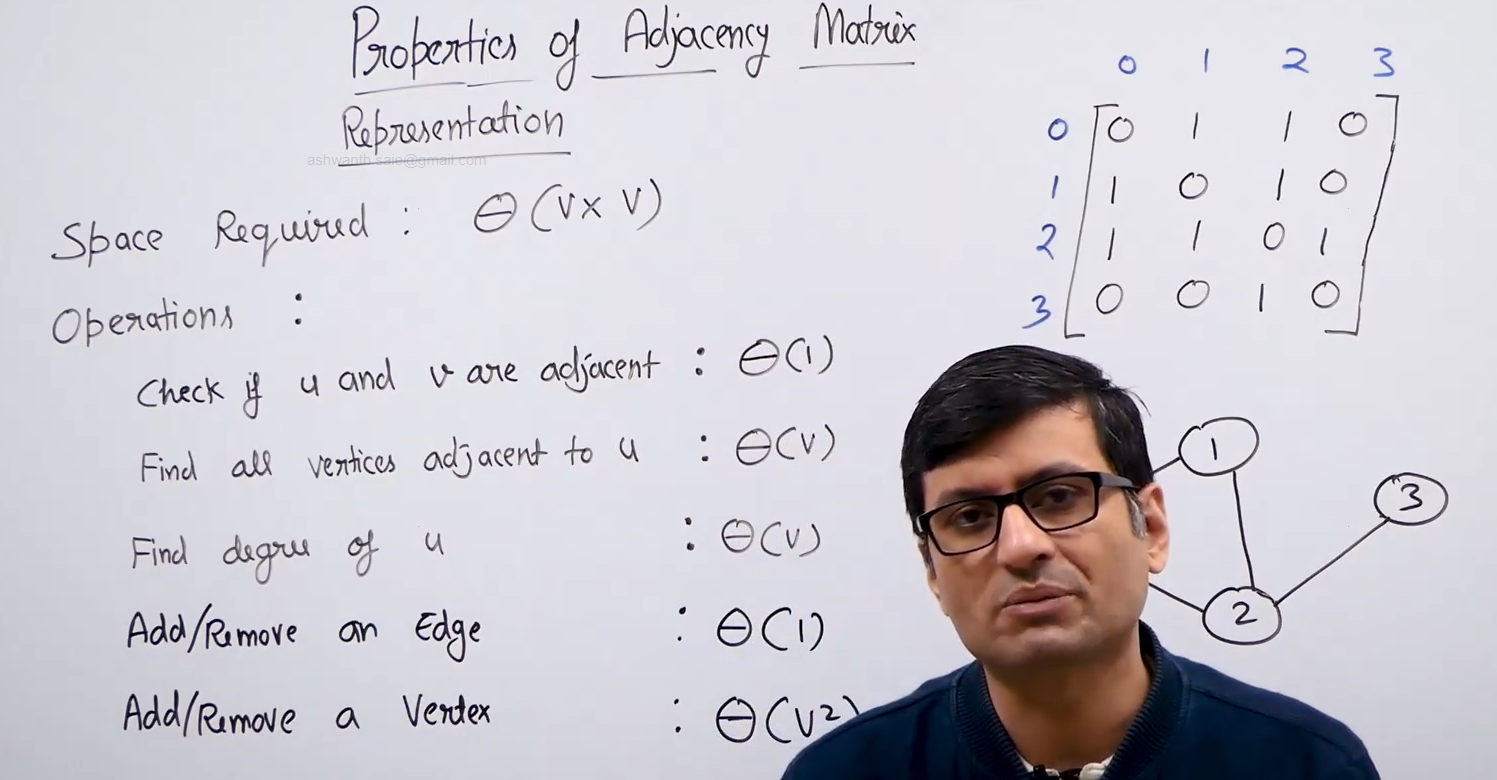 Properties of Adjacency Matrix
Representation
ashwanth.saie@gmail.com
Space Required : Θ(V x V)
Operations :
Check if u and v are adjacent : Θ(1)
Find all vertices adjacent to u : Θ(V)
Find degree of u : Θ(V)
Add/Remove an Edge : Θ(1)
Add/Remove a Vertex : Θ(V²)
0 1 2 3
0 0 1 1 0
1 1 0 1 0
2 1 1 0 1
3 0 0 1 0
1
3
2